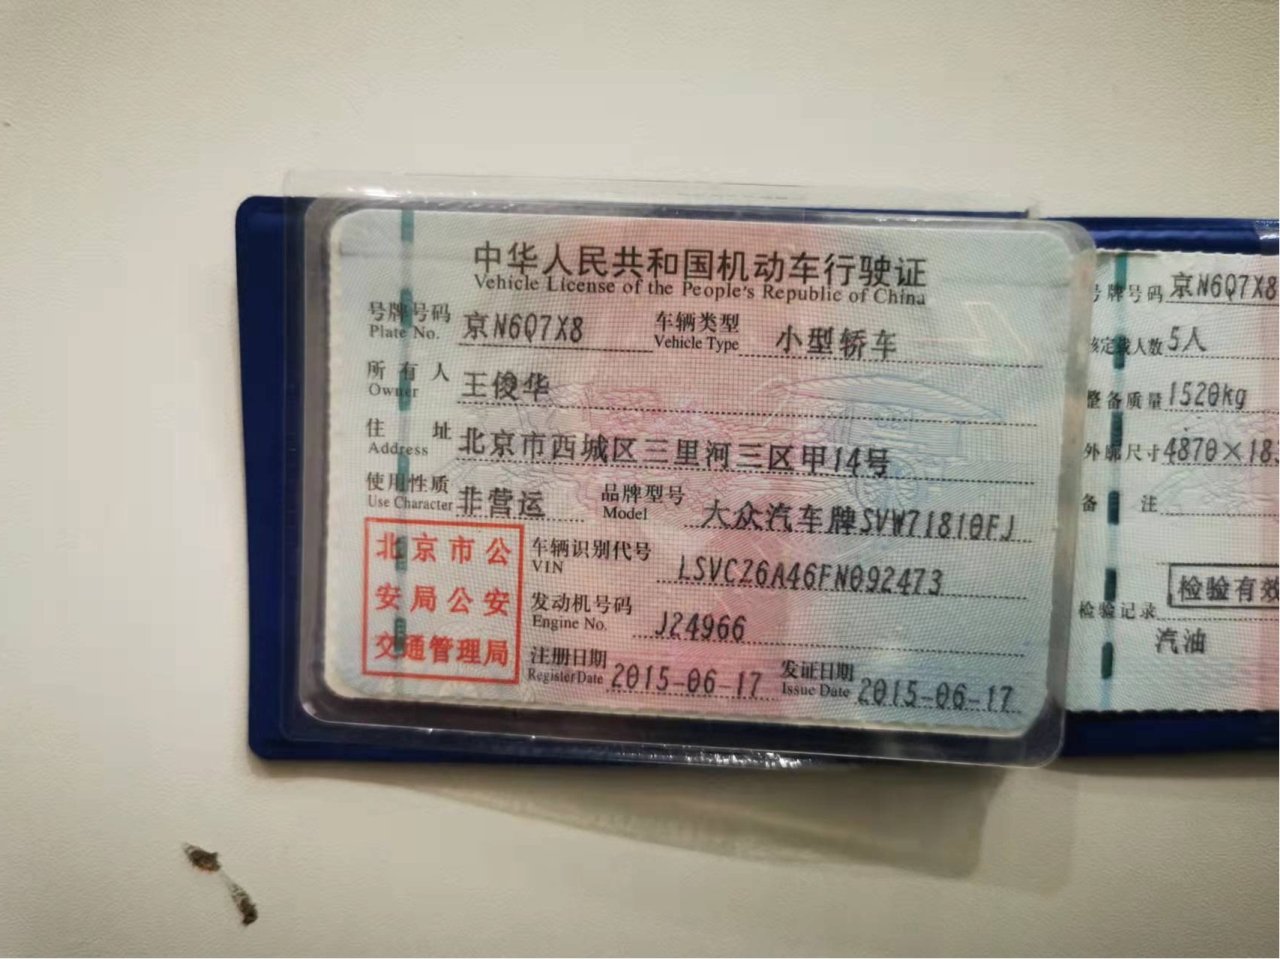 中华人民共和国机动车行驶证
Vehicle License of the People's Republic of China
号牌号码 京N6Q7X8 车辆类型 小型轿车
Plate No. Vehicle Type
所有人 王俊华
Owner
住址 北京市西城区三里河三区甲14号
Address
使用性质 非营运 品牌型号 大众汽车牌SVW71810FJ
Use Character Model
北京市公
安局公安
交通管理局
车辆识别代号 LSVCZ6A46FN092473
VIN
发动机号码 J24966
Engine No.
注册日期 2015-06-17 发证日期 2015-06-17
Register Date Issue Date
号牌号码 京N6Q7X8
核定载人数 5人
整备质量 1520kg
外廓尺寸 4870×18
备注
检验有效
检验记录
汽油